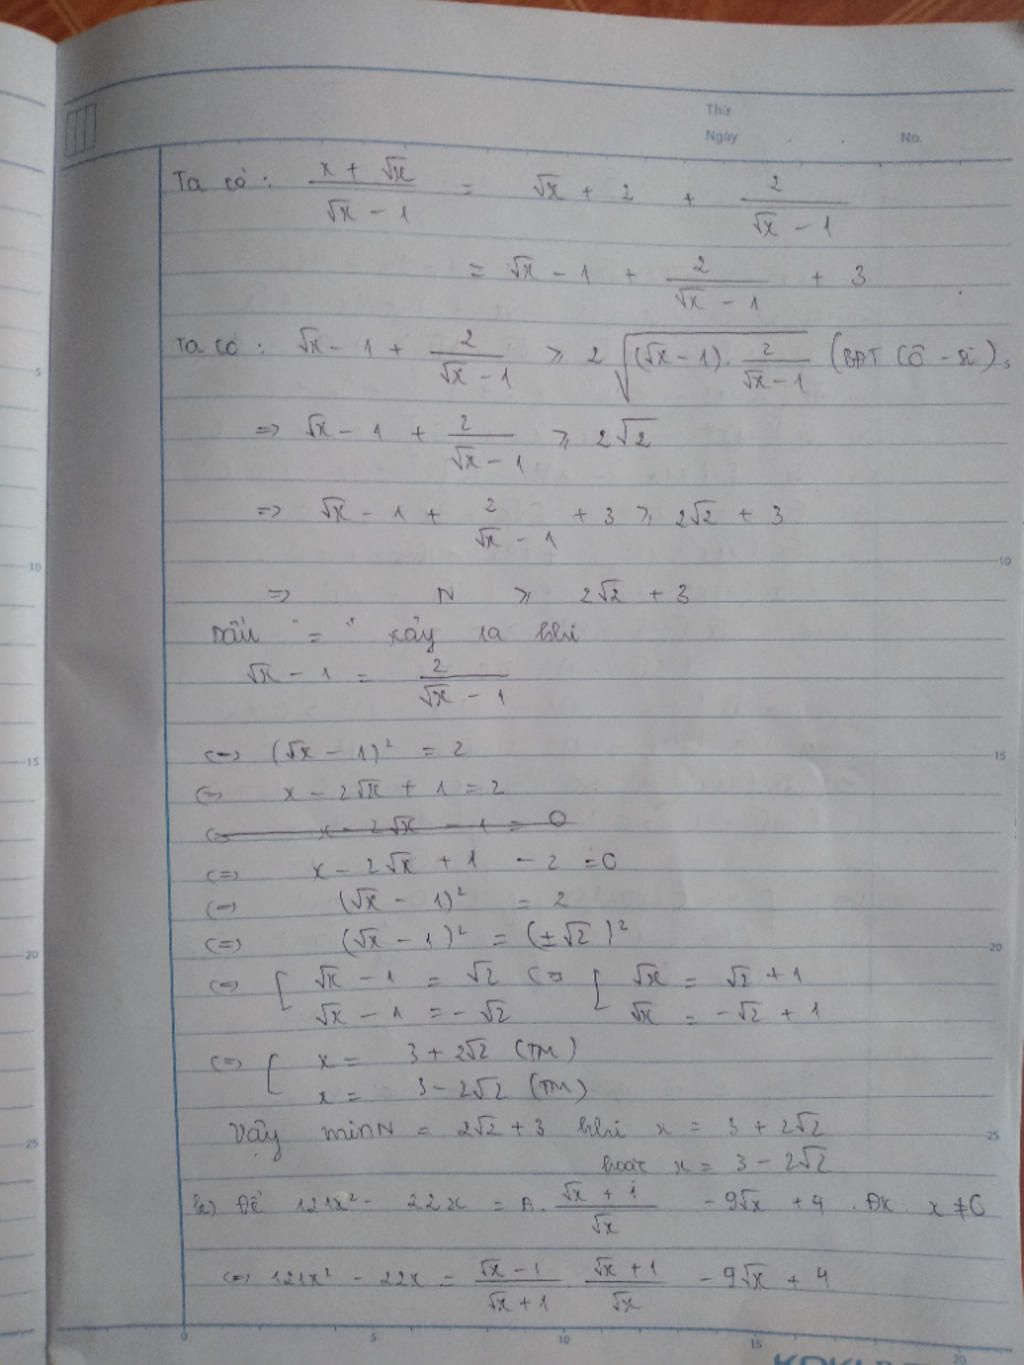 Thứ
Ngày . . No.
Ta có : \frac{x + √x}{√x - 1} = √x + 2 + \frac{2}{√x - 1}
= √x - 1 + \frac{2}{√x - 1} + 3
Ta có : √x - 1 + \frac{2}{√x - 1} ⩾ 2\sqrt{(√x - 1) . \frac{2}{√x - 1}} (BĐT Cô - si)
=> √x - 1 + \frac{2}{√x - 1} ⩾ 2√2
=> √x - 1 + \frac{2}{√x - 1} + 3 ⩾ 2√2 + 3
=> N ⩾ 2√2 + 3
Dấu " = " xảy ra khi
√x - 1 = \frac{2}{√x - 1}
<=> (√x - 1)² = 2
<=> x - 2√x + 1 = 2
<=> x - 2√x - 1 = 0
<=> x - 2√x + 1 - 2 = 0
<=> (√x - 1)² = 2
<=> (√x - 1)² = (±√2)²
<=> [ √x - 1 = √2 <=> [ √x = √2 + 1
√x - 1 = - √2 √x = -√2 + 1
<=> [ x = 3 + 2√2 (TM)
x = 3 - 2√2 (TM)
Vậy minN = 2√2 + 3 khi x = 3 + 2√2
hoặc x = 3 - 2√2
k) Để 121x² - 22x = A. \frac{√x + 1}{√x} - 9√x + 4 . ĐK x ≠ 0
<=> 121x² - 22x = \frac{√x - 1}{√x + 1} \frac{√x + 1}{√x} - 9√x + 4
5
10
15
20
25
5
10
15
20
25
0 5 10 15 20